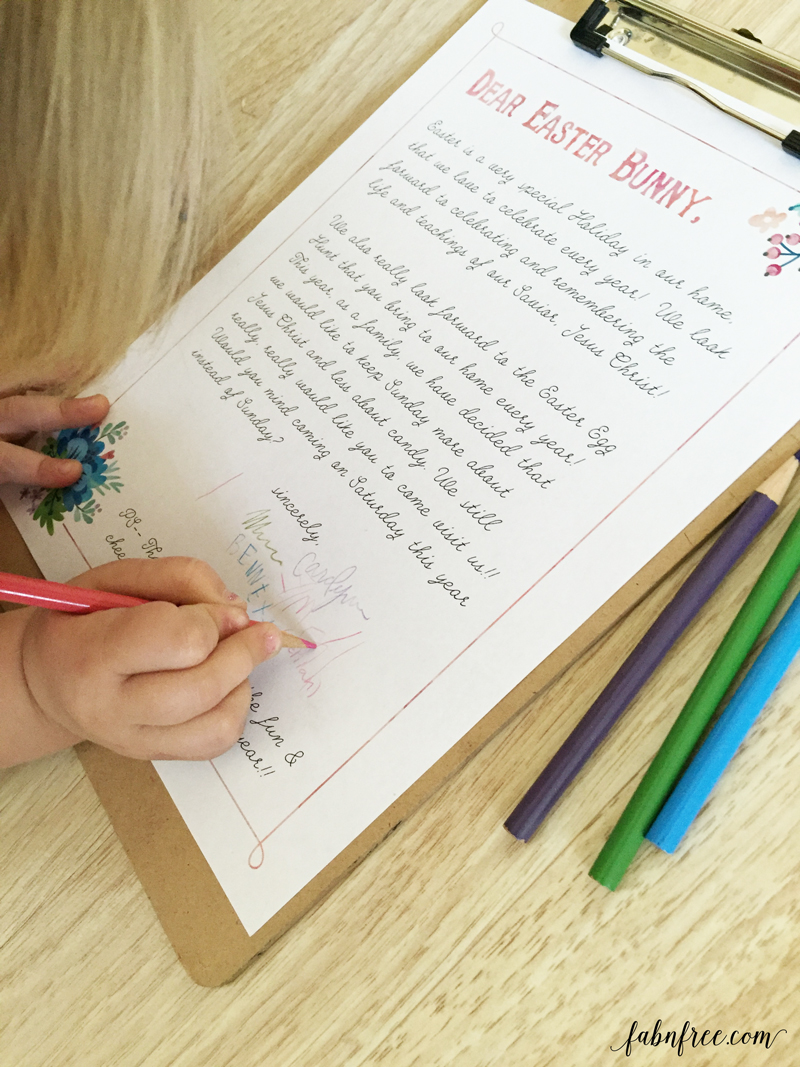 DEAR EASTER BUNNY,
Easter is a very special Holiday in our home,
that we love to celebrate every year! We look
forward to celebrating and remembering the
life and teachings of our Savior, Jesus Christ!
We also really look forward to the Easter Egg
Hunt that you bring to our home every year!
This year, as a family, we have decided that
we would like to keep Sunday more about
Jesus Christ and less about candy. We still
really, really would like you to come visit us!!
Would you mind coming on Saturday this year
instead of Sunday?
sincerely,
Carolynn
PS--
fun &
year!!
fabnfree.com